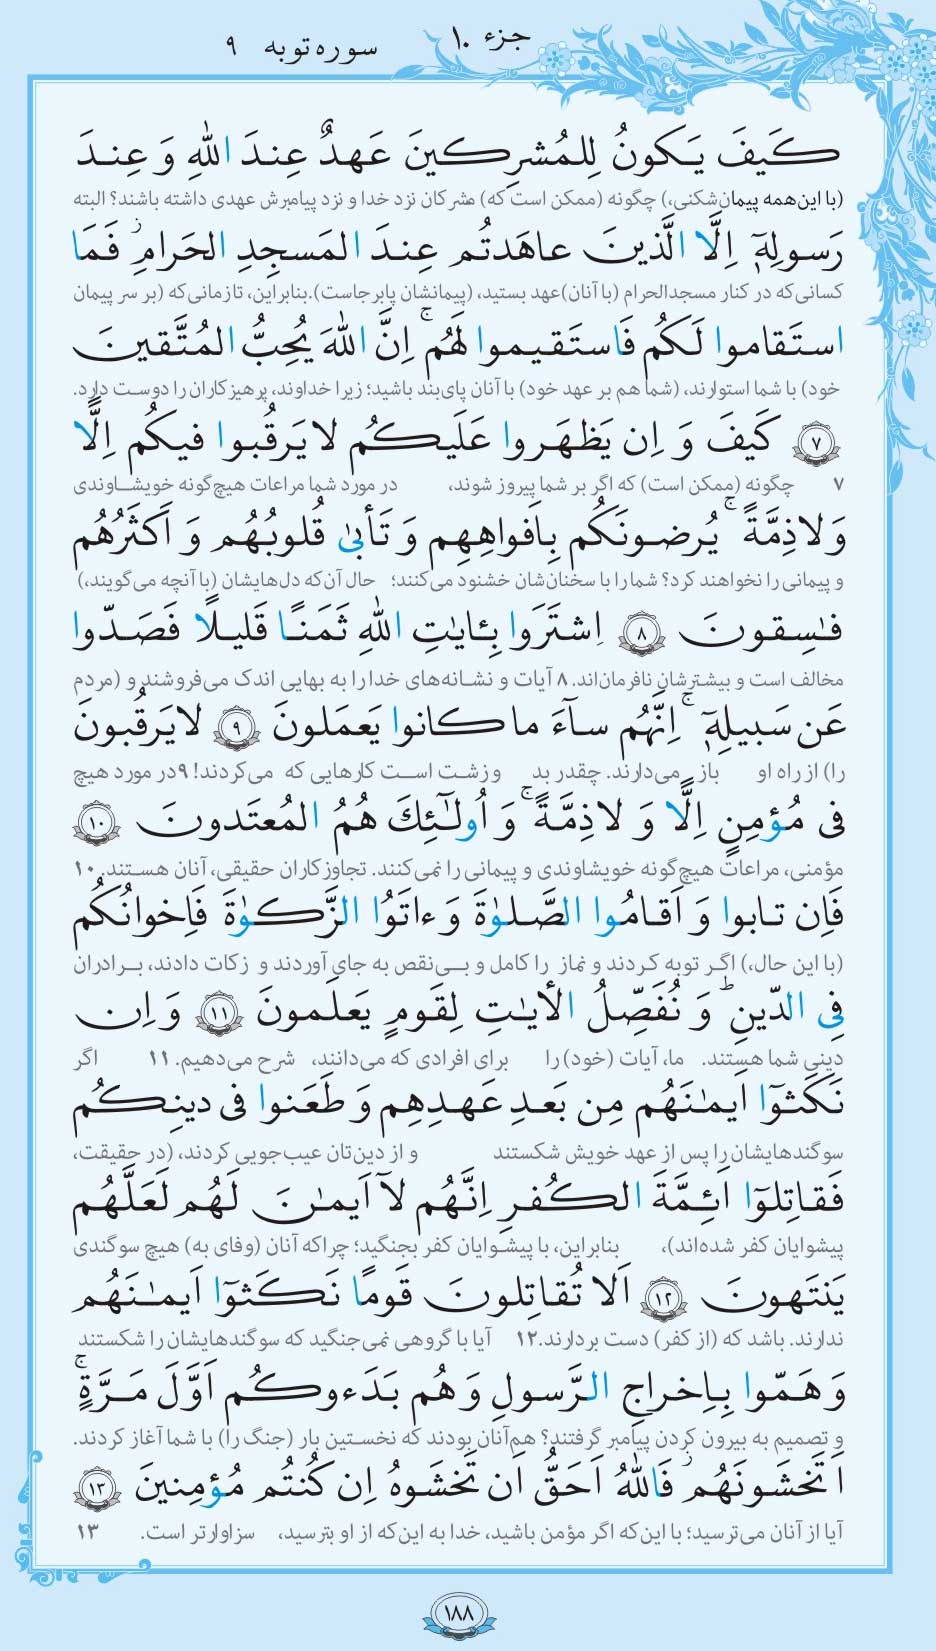 جزء ۱۰
سوره توبه ۹
كَيفَ يَكونُ لِلمُشرِكينَ عَهدٌ عِندَ اللهِ وَ عِندَ
(با این‌همه پیمان‌شکنی،) چگونه (ممکن است که) مشرکان نزد خدا و نزد پیامبرش عهدی داشته باشند؟ البته
رَسولِهٖٓ اِلَّا الَّذينَ عاهَدتُم عِندَ المَسجِدِ الحَرامِ ۖ فَمَا
کسانی‌که در کنار مسجدالحرام (با آنان)عهد بستید، (پیمانشان پابرجاست).بنابراین، تا زمانی‌که (بر سر پیمان
استَقاموا لَكُم فَاستَقيموا لَهُم ۚ اِنَّ اللهَ يُحِبُّ المُتَّقينَ
خود) با شما استوارند، (شما هم بر عهد خود) با آنان پای‌بند باشید؛ زیرا خداوند، پرهیزکاران را دوست دارد.
۷ كَيفَ وَ اِن يَظهَروا عَلَيكُم لا يَرقُبوا فيكُم اِلًّا
۷ چگونه (ممکن است) که اگر بر شما پیروز شوند، در مورد شما مراعات هیچ‌گونه خویشاوندی
وَ لا ذِمَّةً ۚ يُرضونَكُم بِاَفواهِهِم وَ تَأبىٰ قُلوبُهُم وَ اَكثَرُهُم
و پیمانی را نخواهند کرد؟ شما را با سخنان‌شان خشنود می‌کنند؛ حال آن‌که دل‌هایشان (با آنچه می‌گویند،)
فٰسِقونَ ۸ اِشتَرَوا بِـٔايٰتِ اللهِ ثَمَنًا قَليلًا فَصَدّوا
مخالف است و بیشترشان نافرمان‌اند. ۸ آیات و نشانه‌های خدا را به بهایی اندک می‌فروشند و (مردم
عَن سَبيلِهٖٓ ۚ اِنَّهُم سآءَ ما كانوا يَعمَلونَ ۹ لا يَرقُبونَ
را) از راه او باز می‌دارند. چقدر بد و زشت است کارهایی که می‌کردند! ۹ در مورد هیچ
فى مُؤمِنٍ اِلًّا وَ لا ذِمَّةً ۚ وَ اُولٰٓئِكَ هُمُ المُعتَدونَ ۱۰
مؤمنی، مراعات هیچ‌گونه خویشاوندی و پیمانی را نمی‌کنند. تجاوزکاران حقیقی، آنان هستند. ۱۰
فَاِن تابوا وَ اَقامُوا الصَّلوٰةَ وَ ءاتَوُا الزَّكوٰةَ فَاِخوانُكُم
(با این حال،) اگر توبه کردند و نماز را کامل و بی‌نقص به جای آوردند و زکات دادند، برادران
فِى الدّينِ ۗ وَ نُفَصِّلُ الأيٰتِ لِقَومٍ يَعلَمونَ ۱۱ وَ اِن
دینی شما هستند. ما، آیات (خود) را برای افرادی که می‌دانند، شرح می‌دهیم. ۱۱ اگر
نَكَثوٓا اَيمٰنَهُم مِن بَعدِ عَهدِهِم وَ طَعَنوا فى دينِكُم
سوگندهایشان را پس از عهد خویش شکستند و از دین‌تان عیب‌جویی کردند، (در حقیقت،
فَقاتِلوٓا اَئِمَّةَ الكُفرِ اِنَّهُم لآ اَيمٰنَ لَهُم لَعَلَّهُم
پیشوایان کفر شده‌اند)، بنابراین، با پیشوایان کفر بجنگید؛ چراکه آنان (وفای به) هیچ سوگندی
يَنتَهونَ ۱۲ اَلا تُقاتِلونَ قَومًا نَكَثوٓا اَيمٰنَهُم
ندارند. باشد که (از کفر) دست بردارند.۱۲ آیا با گروهی نمی‌جنگید که سوگندهایشان را شکستند
وَ هَمّوا بِاِخراجِ الرَّسولِ وَ هُم بَدَءوكُم اَوَّلَ مَرَّةٍ ۚ
و تصمیم به بیرون کردن پیامبر گرفتند؟ هم‌آنان بودند که نخستین بار (جنگ را) با شما آغاز کردند.
اَتَخشَونَهُم ۖ فَاللهُ اَحَقُّ اَن تَخشَوهُ اِن كُنتُم مُؤمِنينَ ۱۳
آیا از آنان می‌ترسید؛ با این‌که اگر مؤمن باشید، خدا به این‌که از او بترسید، سزاوارتر است. ۱۳
۱۸۸